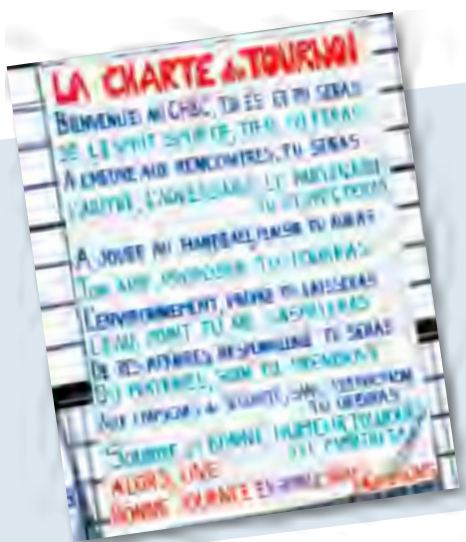 LA CHARTE du TOURNOI
BIENVENUE AU CHBC, TU ES ET TU SERAS
DE L'ESPRIT SPORTIF, TU
A L'HEURE AUX RENCONTRES, TU SERAS
L'ARBITRE, L'ADVERSAIRE, LE PARTENAIRE
TU RESPECTERAS
A JOUER AU HANDBALL, PLAISIR TU AURAS
TON TU
L'ENVIRONNEMENT, PROPRE TU LAISSERAS
L'EAU POINT TU NE GASPILLERAS
DE TES AFFAIRES RESPONSABLE TU SERAS
DU MATERIEL, SOIN TU PRENDRAS
AUX CONSIGNES de SECURITE, SANS
TU
SOURIRE et BONNE HUMEUR TOUJOURS
TU
ALORS, UNE
BONNE JOURNEE